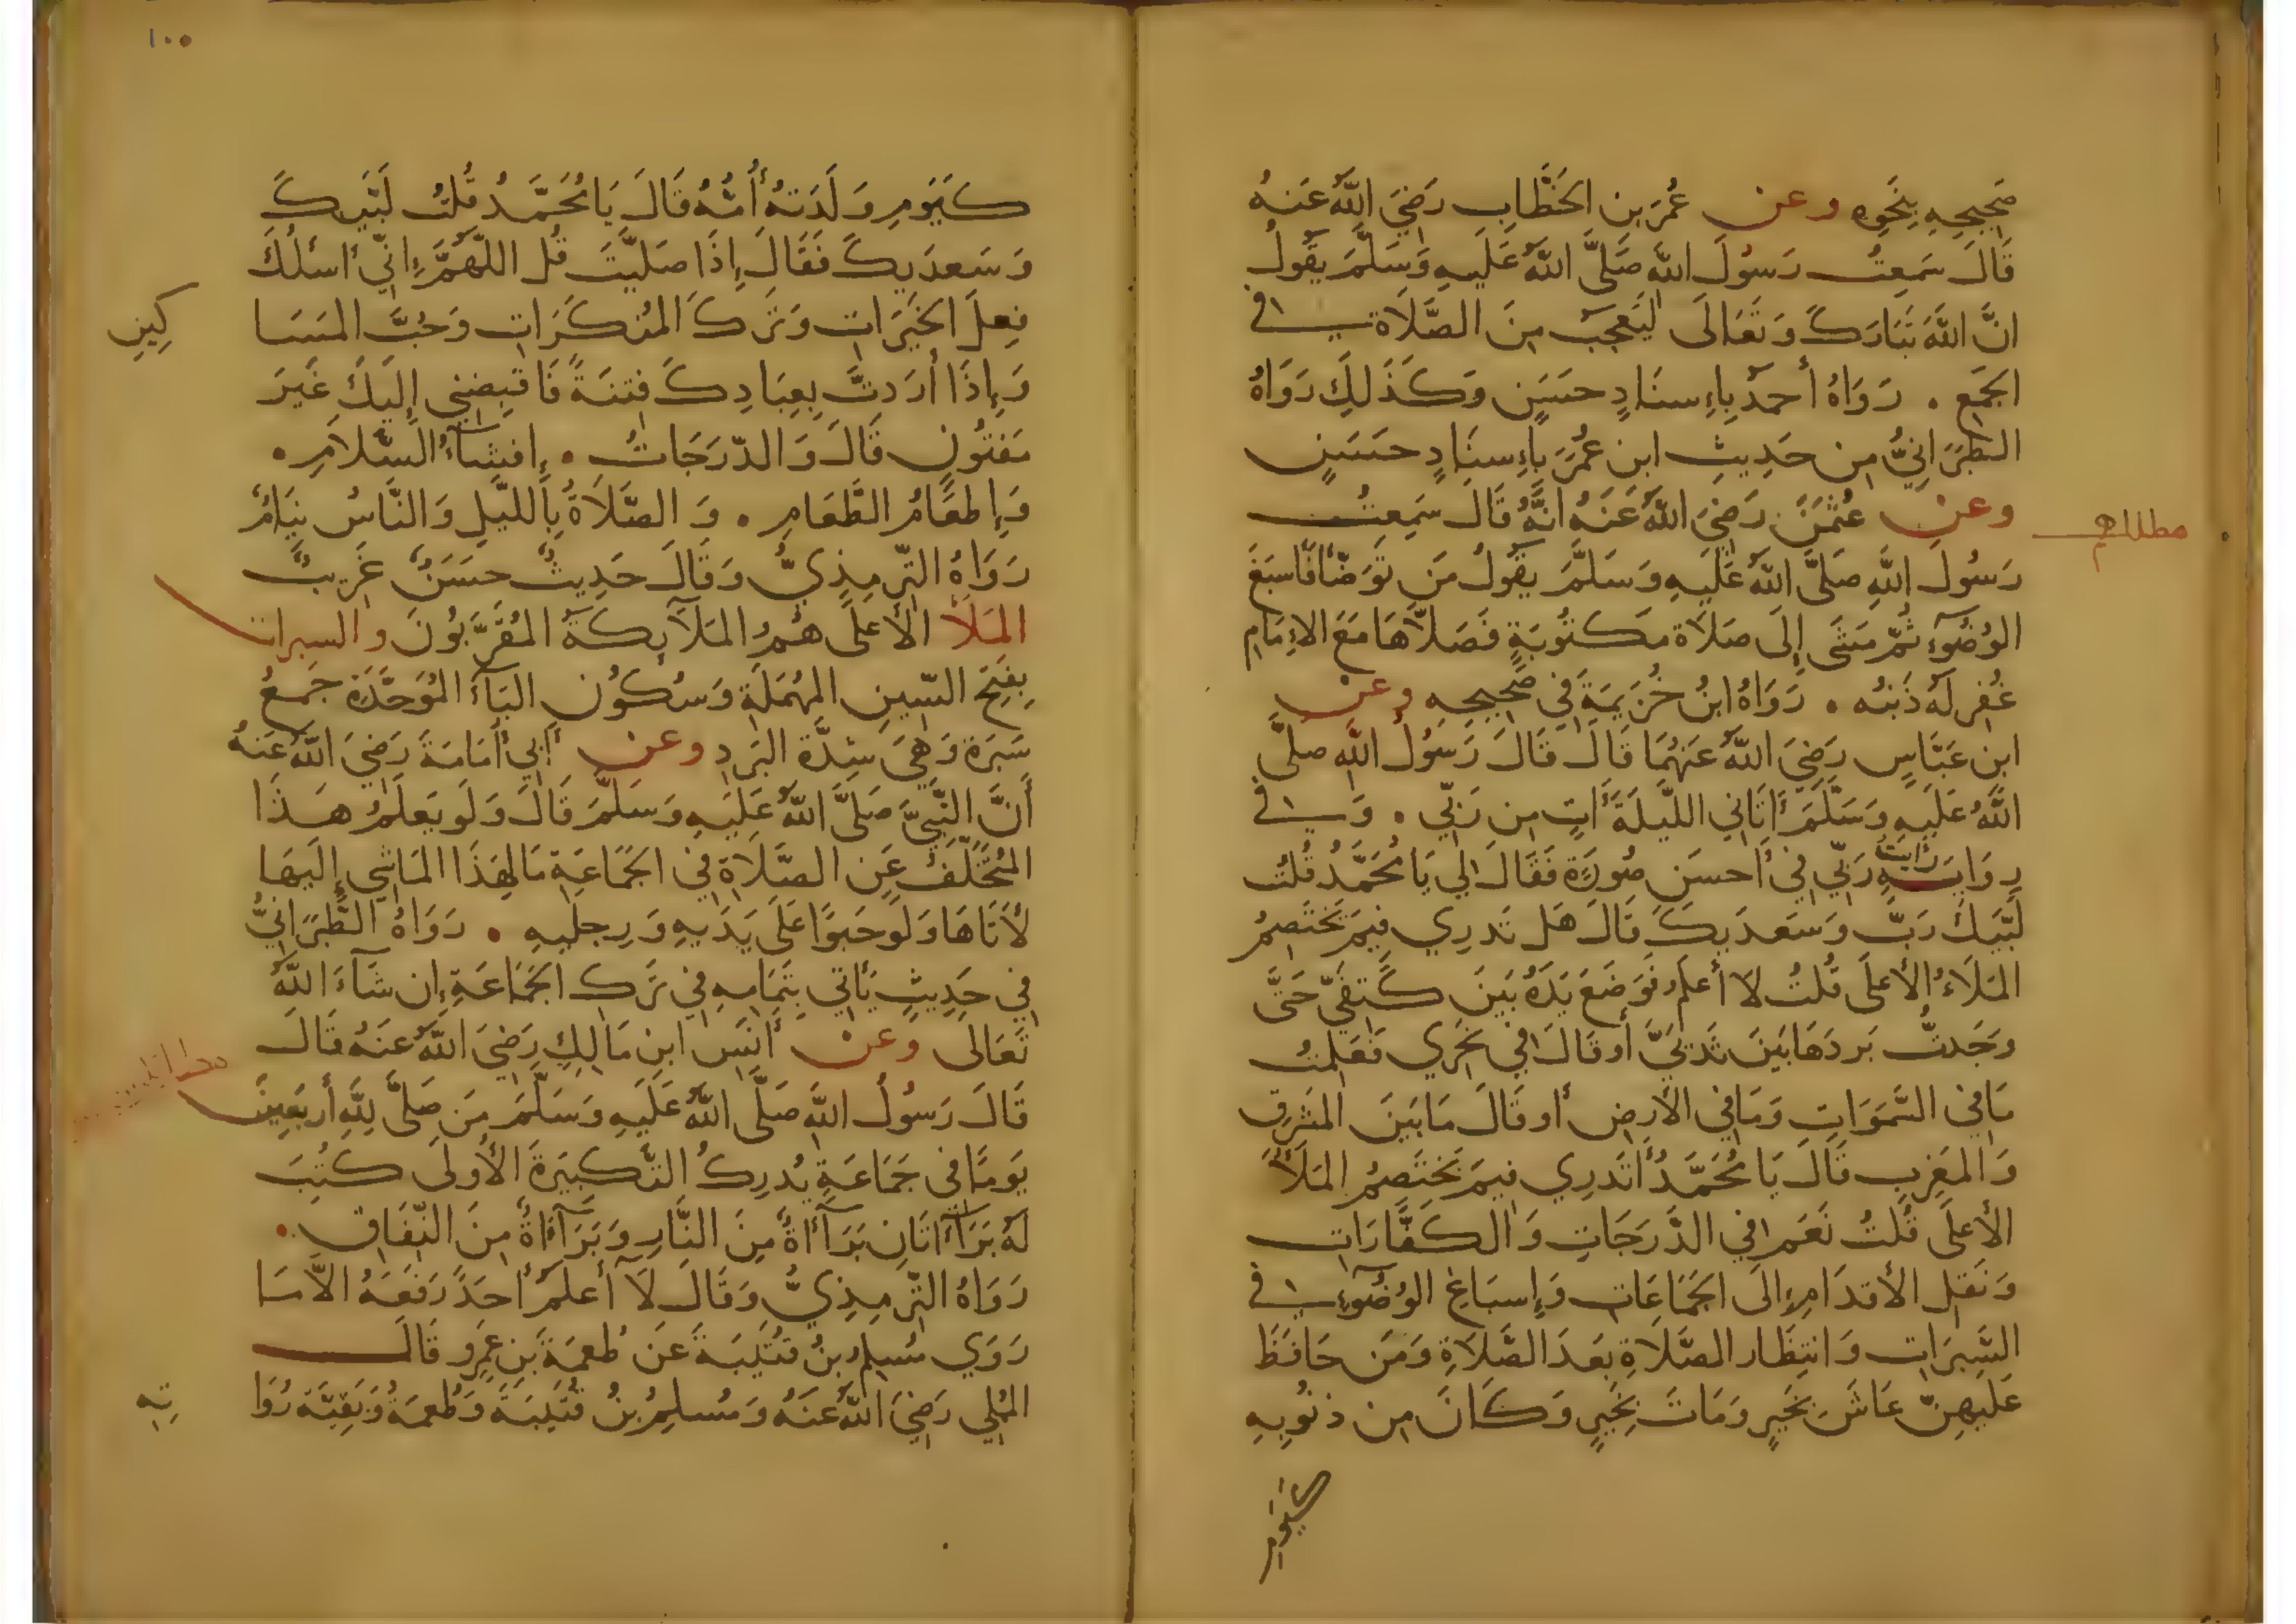 صَحِيحِهِ بِنَحْوِهِ وعن عُمَرَ بنِ الخَطَّابِ رَضِيَ اللَّهُ عَنهُ
قَالَ سَمِعتُ رَسُولَ اللَّهِ صَلَّى اللَّهُ عَلَيهِ وَسَلَّمَ يَقُولُ
انَّ اللَّهَ تَبَارَكَ وَتَعَالَى لَيَعجَبُ مِنَ الصَّلَاةِ في
الجَمعِ . رَوَاهُ أَحمَدُ بِإِسنَادٍ حَسَنٍ وَكَذَلِكَ رَوَاهُ
الطَبَرَانِيُّ مِن حَدِيثِ ابنِ عُمَرَ بِإِسنَادٍ حَسَنٍ
وعن عُثمَنَ رَضِيَ اللَّهُ عَنَهُ انَّهُ قَالَ سَمِعتُ
رَسُولَ اللَّهِ صَلَّى اللَّهُ عَلَيهِ وَسَلَّمَ يَقُولُ مَن تَوَضَّأَ فَأَسبَغَ
الوُضُوءِ ثُمَّ مَشَى إِلَى صَلَاةٍ مَكتُوبَةٍ فَصَلَّاهَا مَعَ الإِمَامِ
غُفِرَ لَهُ ذَنبُه . رَوَاهُ ابنُ خُزَيمَةَ فِي صَحِيحِهِ وعن
ابنِ عَبَّاسٍ رَضِيَ اللَّهُ عَنهُمَا قَالَ قَالَ رَسُولُ اللَّهِ صلَّى
اللَّهُ عَلَيهِ وَسَلَّمَ أَتَانِي اللَّيلَةَ أَتٍ مِن رَبِّي . وَفي
رِوَايَةٍ رَأيتُ رَبِّي فِي أَحسَنِ صُورَةٍ فَقَالَ لِي يَا مُحَمَّدُ قُلتُ
لَبَّيكَ رَبِّ وَسَعدَيكَ قَالَ هَل تَدرِي فِيمَ تَختَصِمُ
المَلَاءُ الأَعلَى قُلتُ لَا أَعلَمُ فَوَضَعَ يَدَهُ بَينَ كَتِفَيَّ حَتَّى
وَجَدتُّ بَردَهَا بَينَ ثَديَيَّ أَو قَالَ فِي نَحرِي فَعَلِمتُ
مَا فِي السَّمَوَاتِ وَمَا فِي الأَرضِ أَو قَالَ مَا بَينَ المَشرِقِ
وَالمَغرِبِ قَالَ يَا مُحَمَّدُ أَتَدرِي فِيمَ تَختَصِمُ المَلَأُ
الأَعلَى قُلتُ نَعَم فِي الدَّرَجَاتِ وَالكَفَّارَاتِ
وَنَقلِ الأَقدَامِ إِلَى الجَمَاعَاتِ وَإِسبَاغِ الوُضُوءِ في
السَّبَرَاتِ وَانتِظَارِ الصَّلَاةِ بَعدَ الصَّلَاةِ وَمَن حَافَظَ
عَلَيهِنَّ عَاشَ بِخَيرٍ وَمَاتَ بِخَيرٍ وَكَانَ مِن ذنُوبِهِ
كَيَومِ
١٠٠
كَيَومِ وَلَدَتهُ أُمُّهُ قَالَ يَا مُحَمَّدُ قُلتُ لَبَّيكَ
وَسَعدَيكَ فَقَالَ إِذَا صَلَّيتَ قُل اللَّهُمَّ إِنِّي أَسئَلُكَ
فِعلَ الخَيرَاتِ وَتَركَ المُنكَرَاتِ وَحُبَّ المَسَا
كِينِ
وَإِذَا أَرَدتَّ بِعِبَادِكَ فِتنَةً فَاقبِضنِي إِلَيكَ غَيرَ
مَفتُونٍ قَالَ وَالدَّرَجَاتُ . إِفشَاءُ السَّلَامِ .
وَإِطعَامُ الطَّعَامِ . وَالصَّلَاةُ بِاللَّيلِ وَالنَّاسُ نِيَامٌ
رَوَاهُ التِّرمِذِيُّ وَقَالَ حَدِيثٌ حَسَنٌ غَرِيبٌ
المَلَأُ الأَعلَى هُمُ المَلَائِكَةُ المُقَرَّبُونَ والسبرات
بِفَتحِ السِّينِ المُهمَلَةِ وَسُكُونِ البَاءِ المُوَحَّدَةِ جَمعُ
سَبَرَةٍ وَهِيَ شِدَّةُ البَردِ وعن أَبِي أُمَامَةَ رَضِيَ اللَّهُ عَنهُ
أَنَّ النَّبِيَّ صَلَّى اللَّهُ عَلَيهِ وَسَلَّمَ قَالَ وَلَو يَعلَمُ هَذَا
المُتَخَلِّفُ عَنِ الصَّلَاةِ فِي الجَمَاعَةِ مَا لِهَذَا المَاشِي إِلَيهَا
لَأَتَاهَا وَلَو حَبوًا عَلَى يَدَيهِ وَرِجلَيهِ . رَوَاهُ الطَّبَرَانِيُّ
فِي حَدِيثٍ يَأتِي بِتَمَامِهِ فِي تَركِ الجَمَاعَةِ إِن شَاءَ اللَّهُ
تَعَالَى وعن أَنَسِ ابنِ مَالِكٍ رَضِيَ اللَّهُ عَنهُ قَالَ
قَالَ رَسُولُ اللَّهِ صَلَّى اللَّهُ عَلَيهِ وَسَلَّمَ مَن صَلَّى لِلَّهِ أَربَعِينَ
يَومًا فِي جَمَاعَةٍ يُدرِكُ التَّكبِيرَةَ الأُولَى كُتِبَ
لَهُ بَرَاءَتَانِ بَرَاءَةٌ مِنَ النَّارِ وَبَرَاءَةٌ مِنَ النِّفَاقِ .
رَوَاهُ التِّرمِذِيُّ وَقَالَ لَا أَعلَمُ أَحَدً رَفَعَهُ الاَّ مَا
رَوَي مُسلِمُ بنُ قُتَيبَةَ عَن طُعمَةَ بنِ عَمرٍو قَالَ
المُلِي رَضِيَ اللَّهُ عَنهُ وَمُسلِمُ بنُ قُتَيبَةَ وَطُعمَةُ وَبَقِيَّة رُوَا
تِهِ